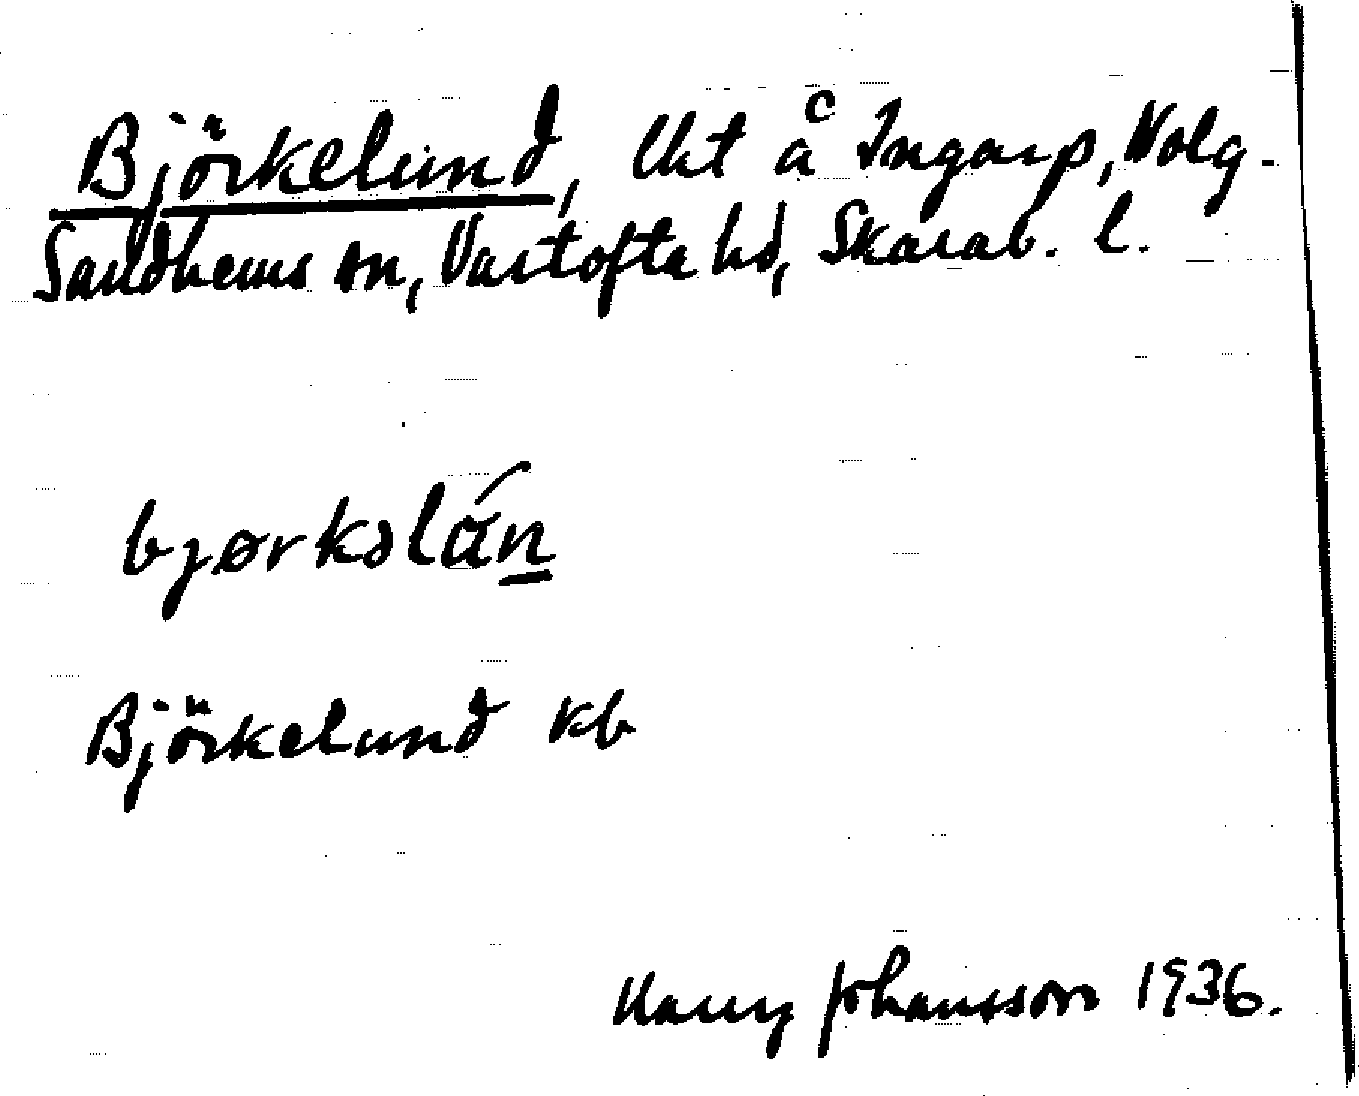 Björkelund, Uht å Ingarp, Nolg-
Sandhems sn, Vartofta hd, Skarab. l.
bjørkəlán
Björkelund kb
Harry Johansson 1936.